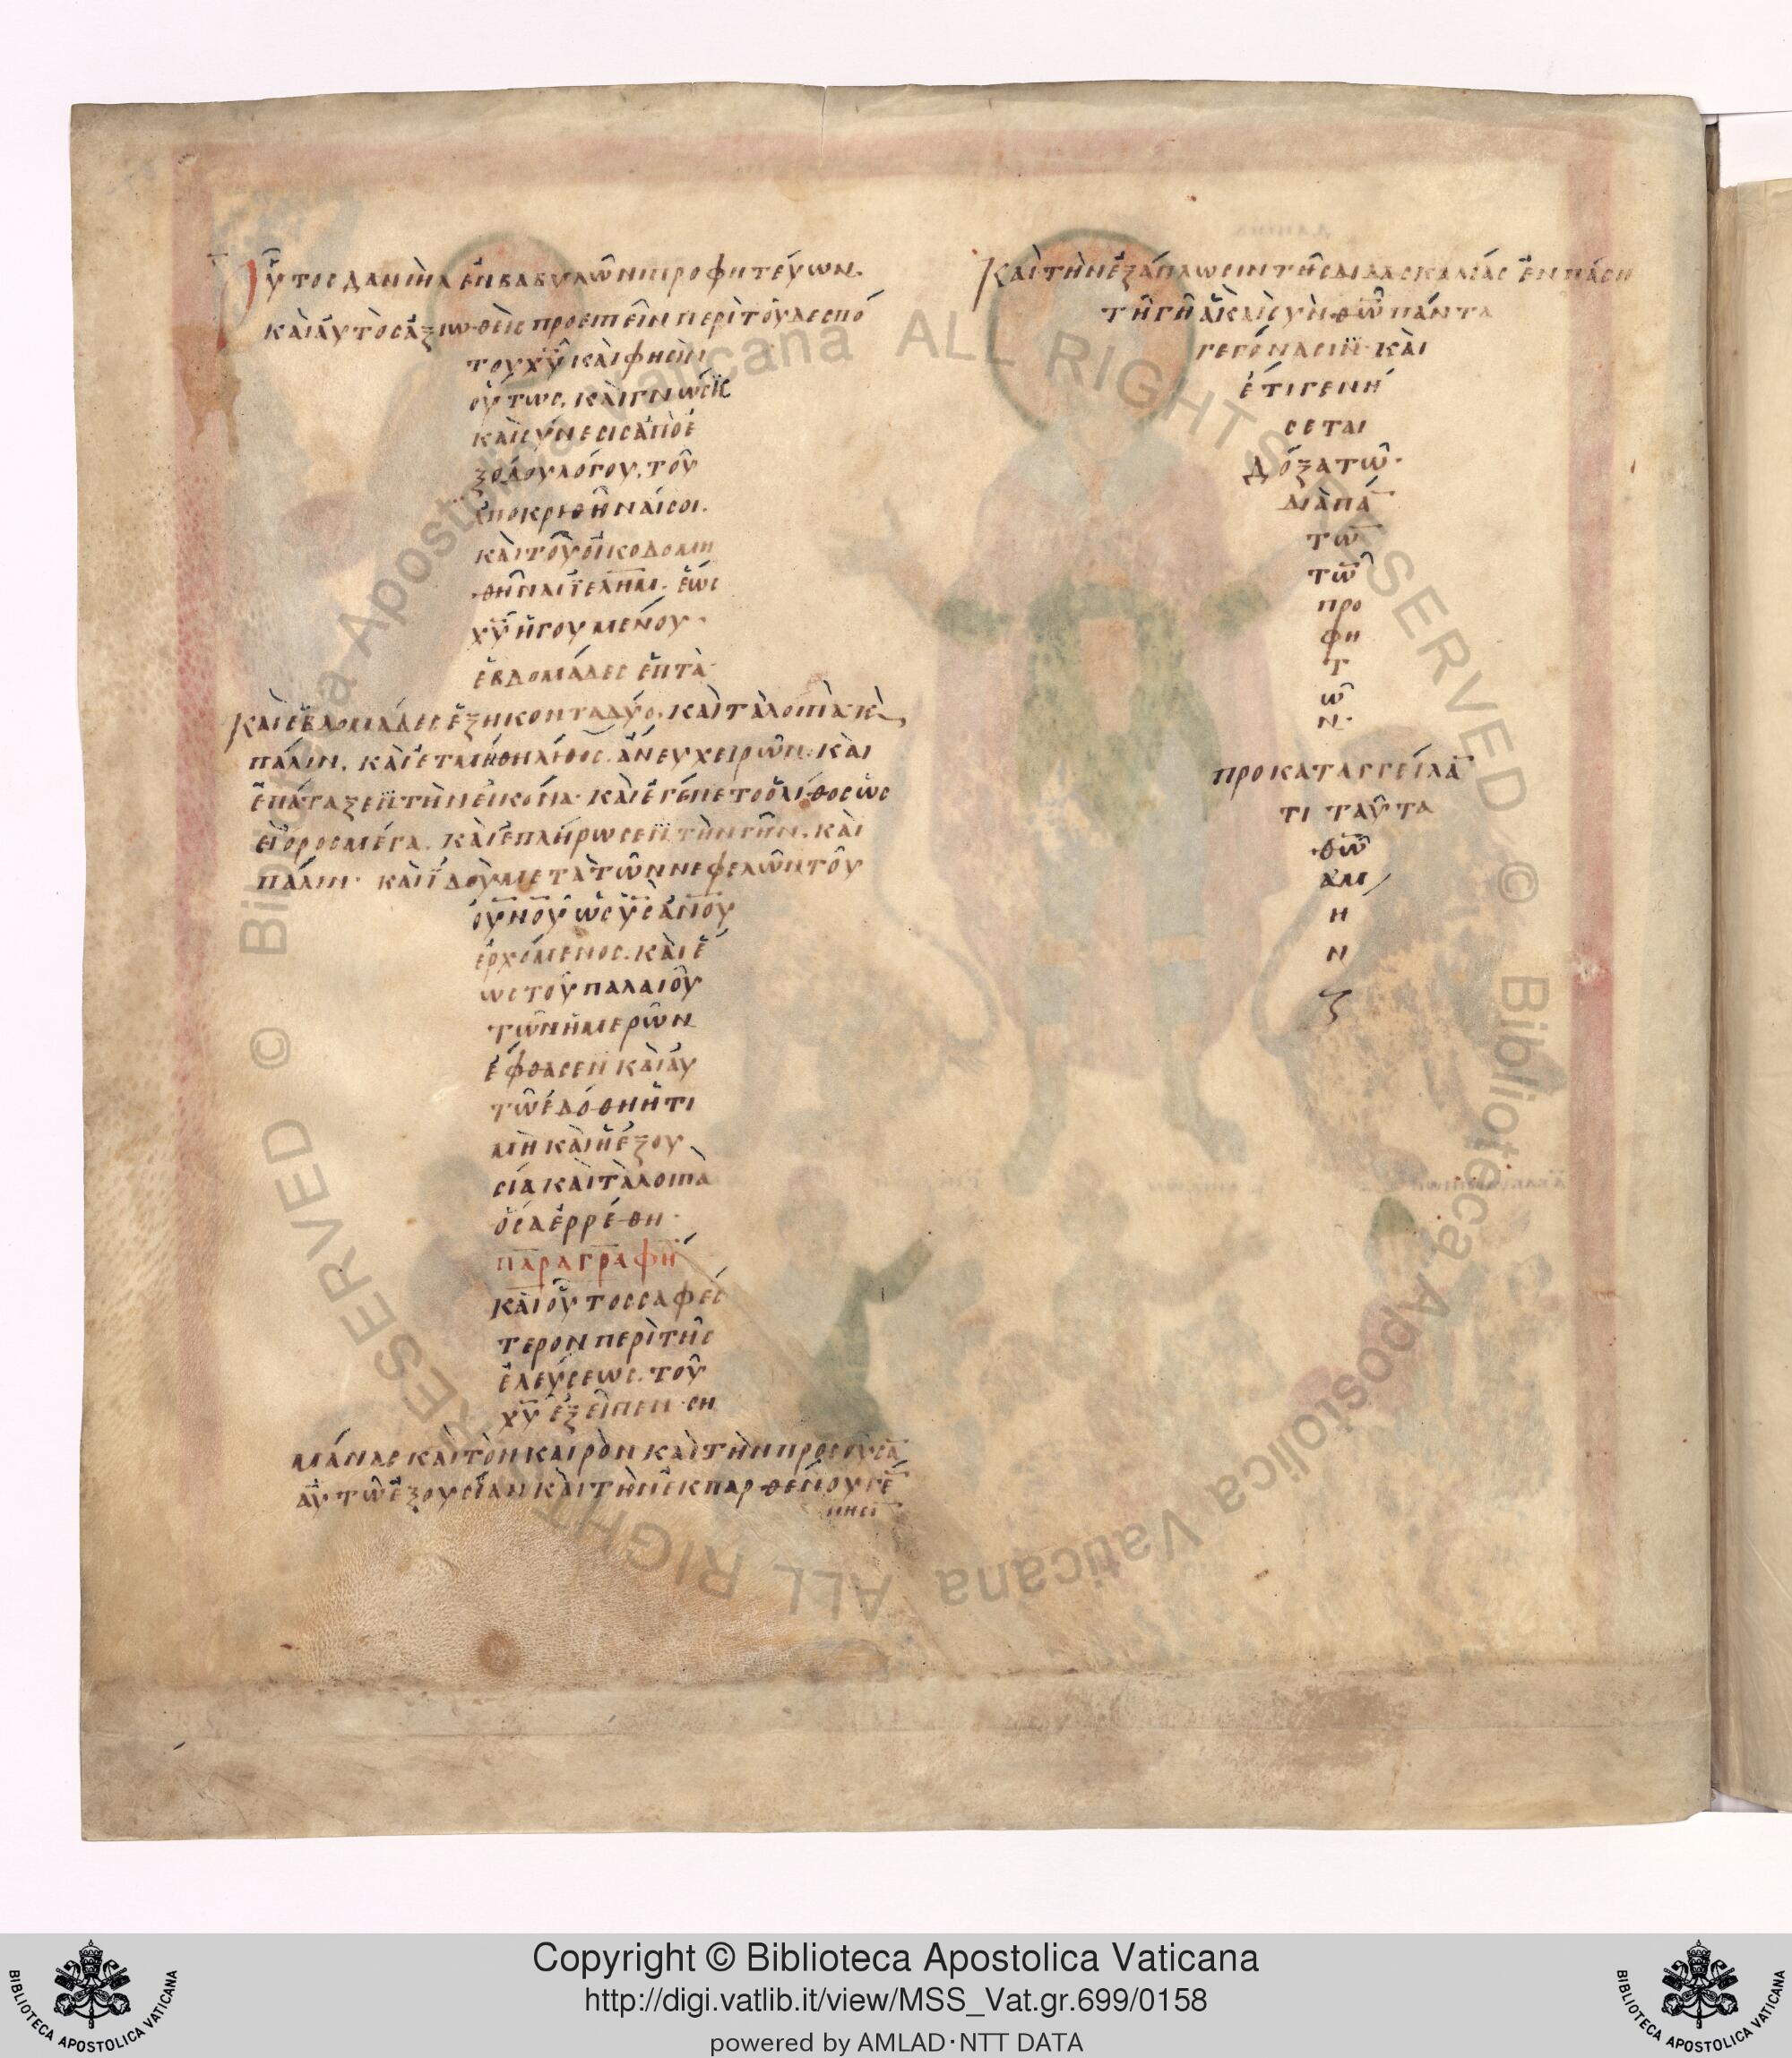 Οὗτος δανιὴλ ἐν βαβυλῶνι προφητεύων.
καὶ αὐτὸς ἀξιωθεὶς προειπεῖν περὶ τοῦ δεσπό
του χῦ καὶ φησὶν
οὕτως. καὶ γνώσῃ
καὶ συνεσις ἀπὸ ἐ
ξόδου λόγου. τοῦ
ἀποκριθῆναί σοι.
καὶ τοῦ οἰκοδομη
θῆναι ϊελημ. ἕως
χῦ ἡγουμένου·
ἑβδομάδες ἑπτὰ·
καὶ ἑβδομάδες ἑξηκονταδύο. καὶ τὰ λοιπὰ κὲ
πάλιν. καὶ ἐτμήθη λίθος ἄνευ χειρῶν. καὶ
ἐπάταξεν τὴν εἰκόνα· καὶ ἐγένετο ὁ λίθος ὡς
εἰ ὄρος μέγα. καὶ ἐπλήρωσεν τὴν γῆν. καὶ
πάλιν· καὶ ϊδοὺ μετὰ τῶν νεφελῶν τοῦ
οὐνοῦ ὡς ὑς ἀνου
ἐρχόμενος. καὶ ἕ
ως τοῦ παλαιοῦ
τῶν ἡμερῶν
ἔφθασεν καὶ αὐ
τῶ ἐδόθη ἡ τι
μὴ καὶ ἡ ἐξου
σία καὶ τὰ λοιπὰ
ὅσα ἐρρέθη·
παραγραφή
καὶ οὗτος σαφέσ
τερον περὶ τῆς
ἐλεύσεως. τοῦ
χῦ ἐξεῖπεν· ση
μάνας καὶ τὸν καιρὸν καὶ τὴν προσοῦσα
αὐτῶ ἐξουσίαν καὶ τὴν ἐκ παρθένου γέ
νησι
καὶ τὴν ἐξάπλωσιν τῆς διδασκαλίας ἐν πάση
τῆ γῆ ἃ καὶ σὺν θω πάντα
γεγόνασιν· καὶ
ἔτι γενή
σεται
Δόξα τῶ·
διὰ πά
τω
τω
προ
φη
τ
ῶ
ν·
προκαταγγείλα
τι ταῦτα
θω
ἀμ
η
ν
BIBLIOTECA APOSTOLICA VATICANA
Copyright © Biblioteca Apostolica Vaticana
http://digi.vatlib.it/view/MSS_Vat.gr.699/0158
powered by AMLAD·NTT DATA
BIBLIOTECA APOSTOLICA VATICANA
© Biblioteca Apostolica Vaticana ALL RIGHTS RESERVED
© Biblioteca Apostolica Vaticana ALL RIGHTS RESERVED